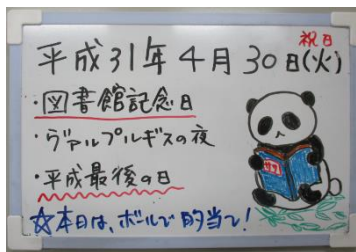 祝日
平成31年4月30日(火)
・図書館記念日
・ヴァルプルギスの夜
・平成最後の日
☆本日は、ボールで的当て!